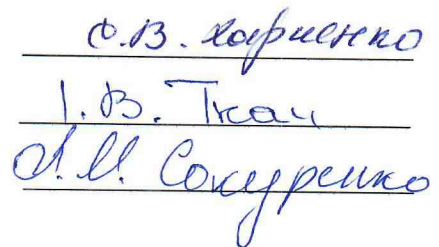 О.В. Харченко
І.В. Ткач
Л.М. Сокуренко